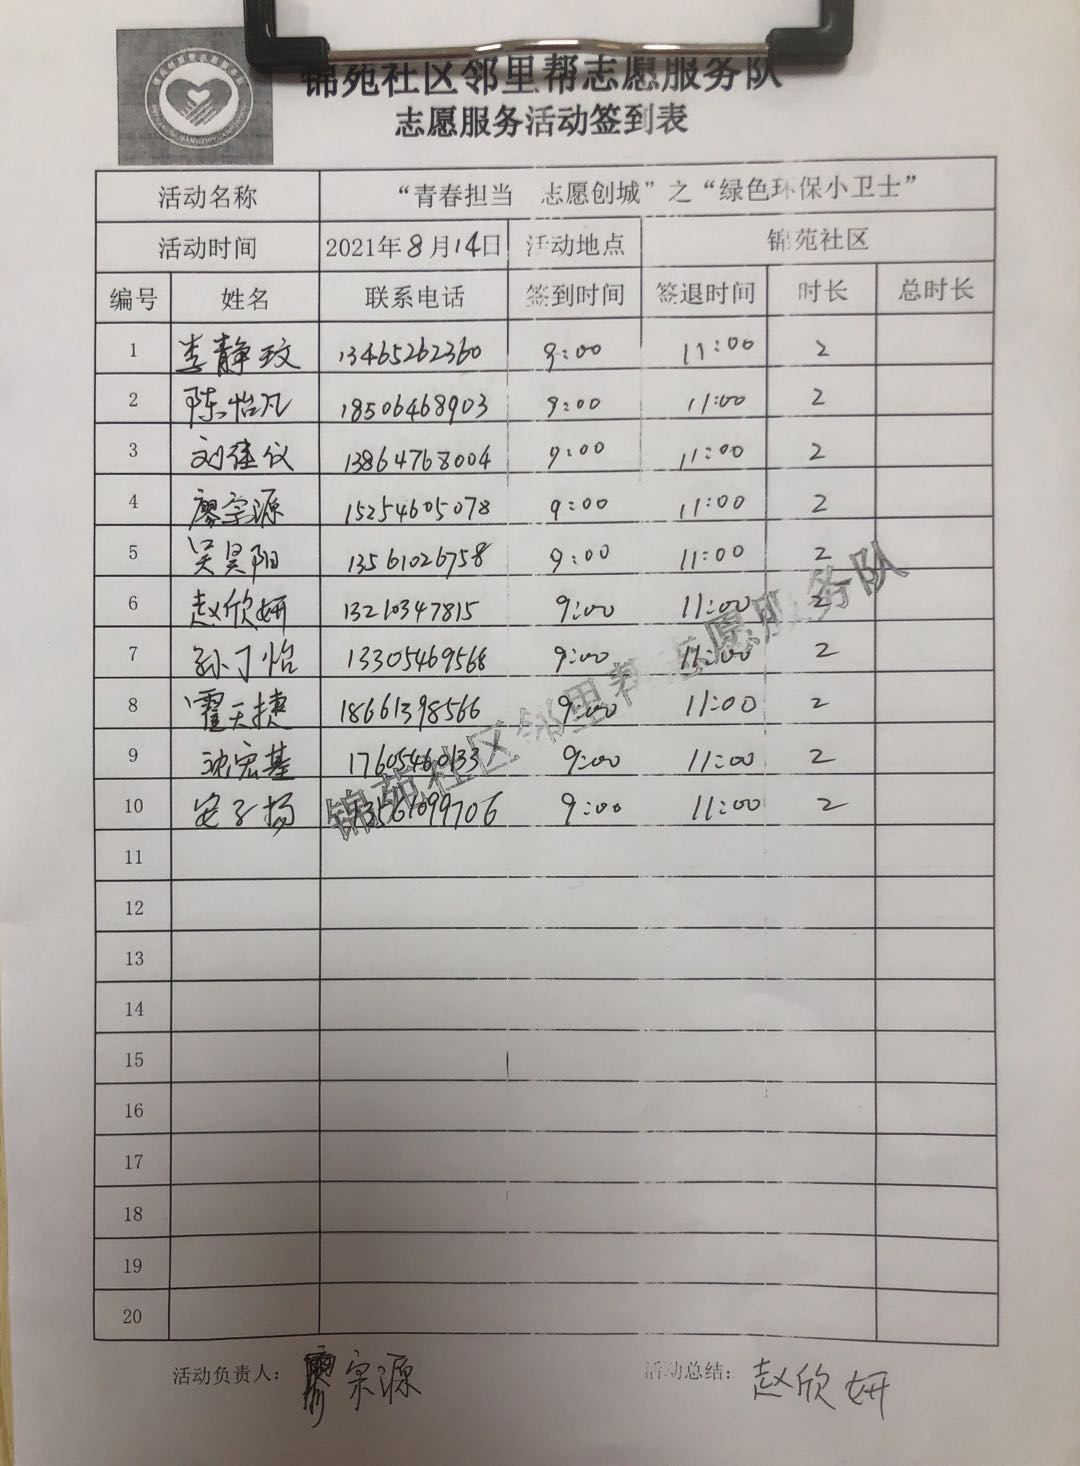 锦苑社区邻里帮志愿服务队
志愿服务活动签到表
活动名称 “青春担当 志愿创城”之“绿色环保小卫士”
活动时间 2021年8月14日 活动地点 锦苑社区
编号 姓名 联系电话 签到时间 签退时间 时长 总时长
1 李静玟 13465262360 9:00 11:00 2
2 陈怡凡 18506468903 9:00 11:00 2
3 刘佳仪 13864768004 9:00 11:00 2
4 廖宗源 15254605078 9:00 11:00 2
5 吴昊阳 13561026758 9:00 11:00 2
6 赵欣妍 13210347815 9:00 11:00 2
7 孙丁怡 13305469568 9:00 11:00 2
8 霍天捷 18661398566 9:00 11:00 2
9 沈宏基 17605460133 9:00 11:00 2
10 安子扬 13561099706 9:00 11:00 2
锦苑社区邻里帮志愿服务队
11
12
13
14
15
16
17
18
19
20
活动负责人: 廖宗源 活动总结: 赵欣妍